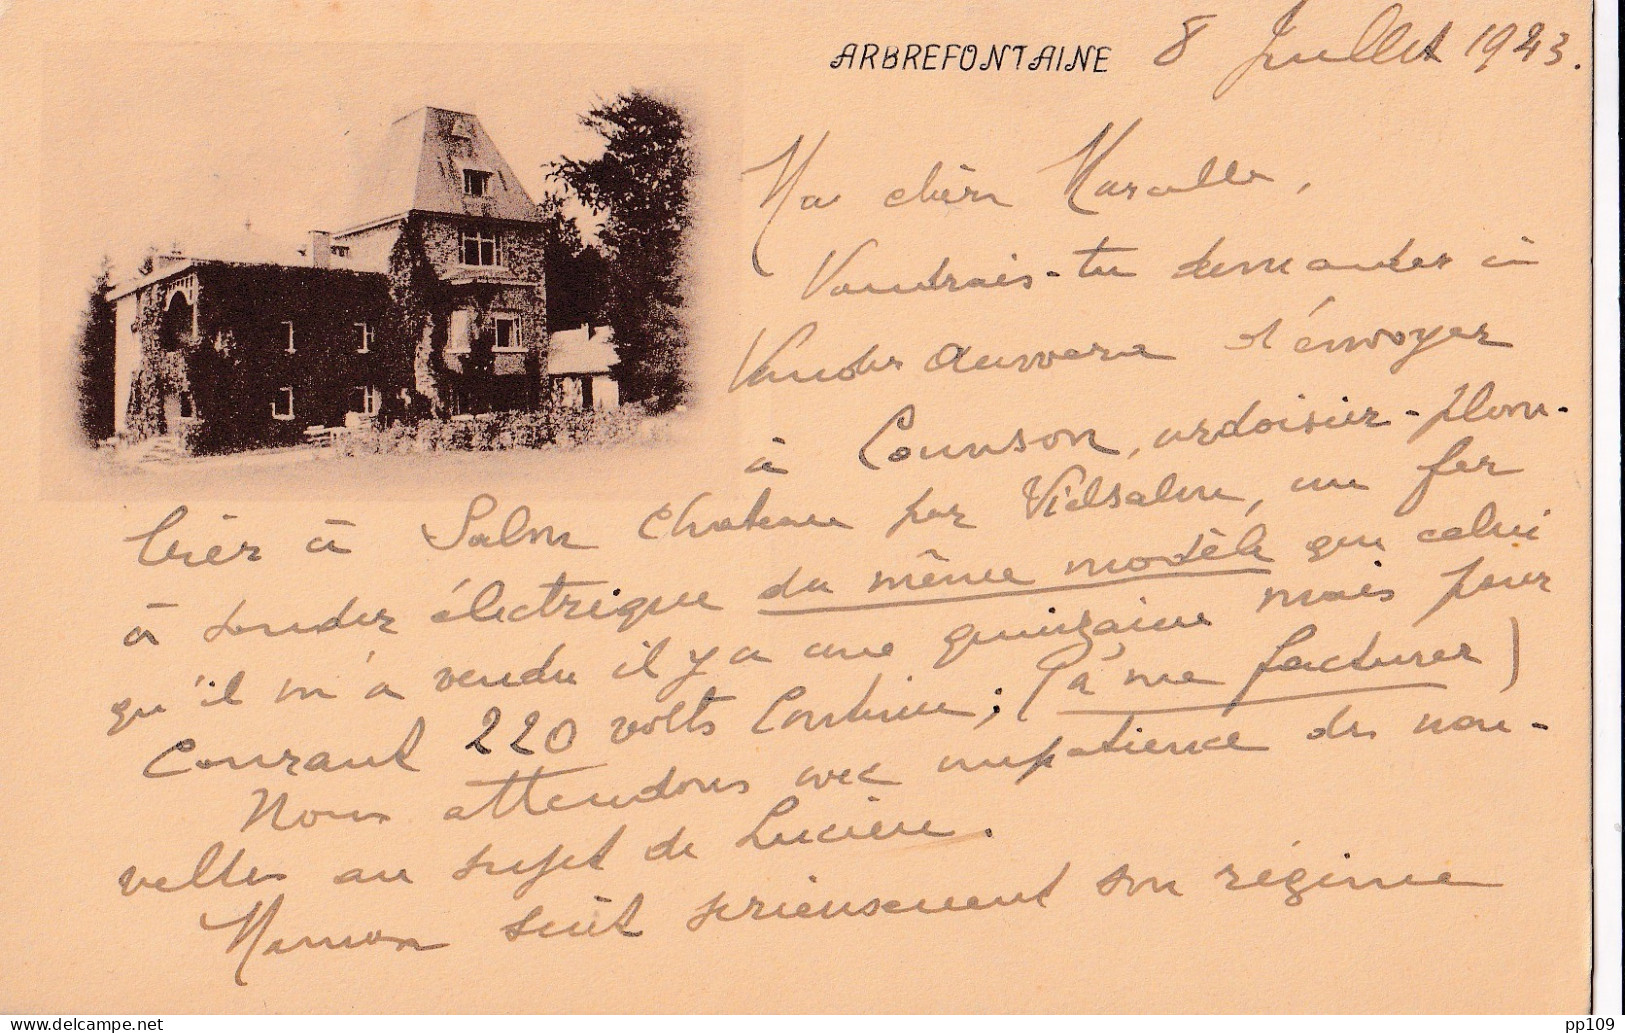 ARBREFONTAINE 8 Juillet 1943.
Ma chère Marcelle,
Voudrais-tu demander à
Vander d'envoyer
à Counson, ardoisier-plom-
bier à Salm Chateau par Vielsalm, un fer
à souder électrique du même modèle que celui
qu'il m'a vendu il y a une quinzaine mais pour
Courant 220 volts Continu; (à me facturer)
Nous attendons avec impatience des nou-
velles au sujet de Lucien.
Maman suit sérieusement son régime
pp109